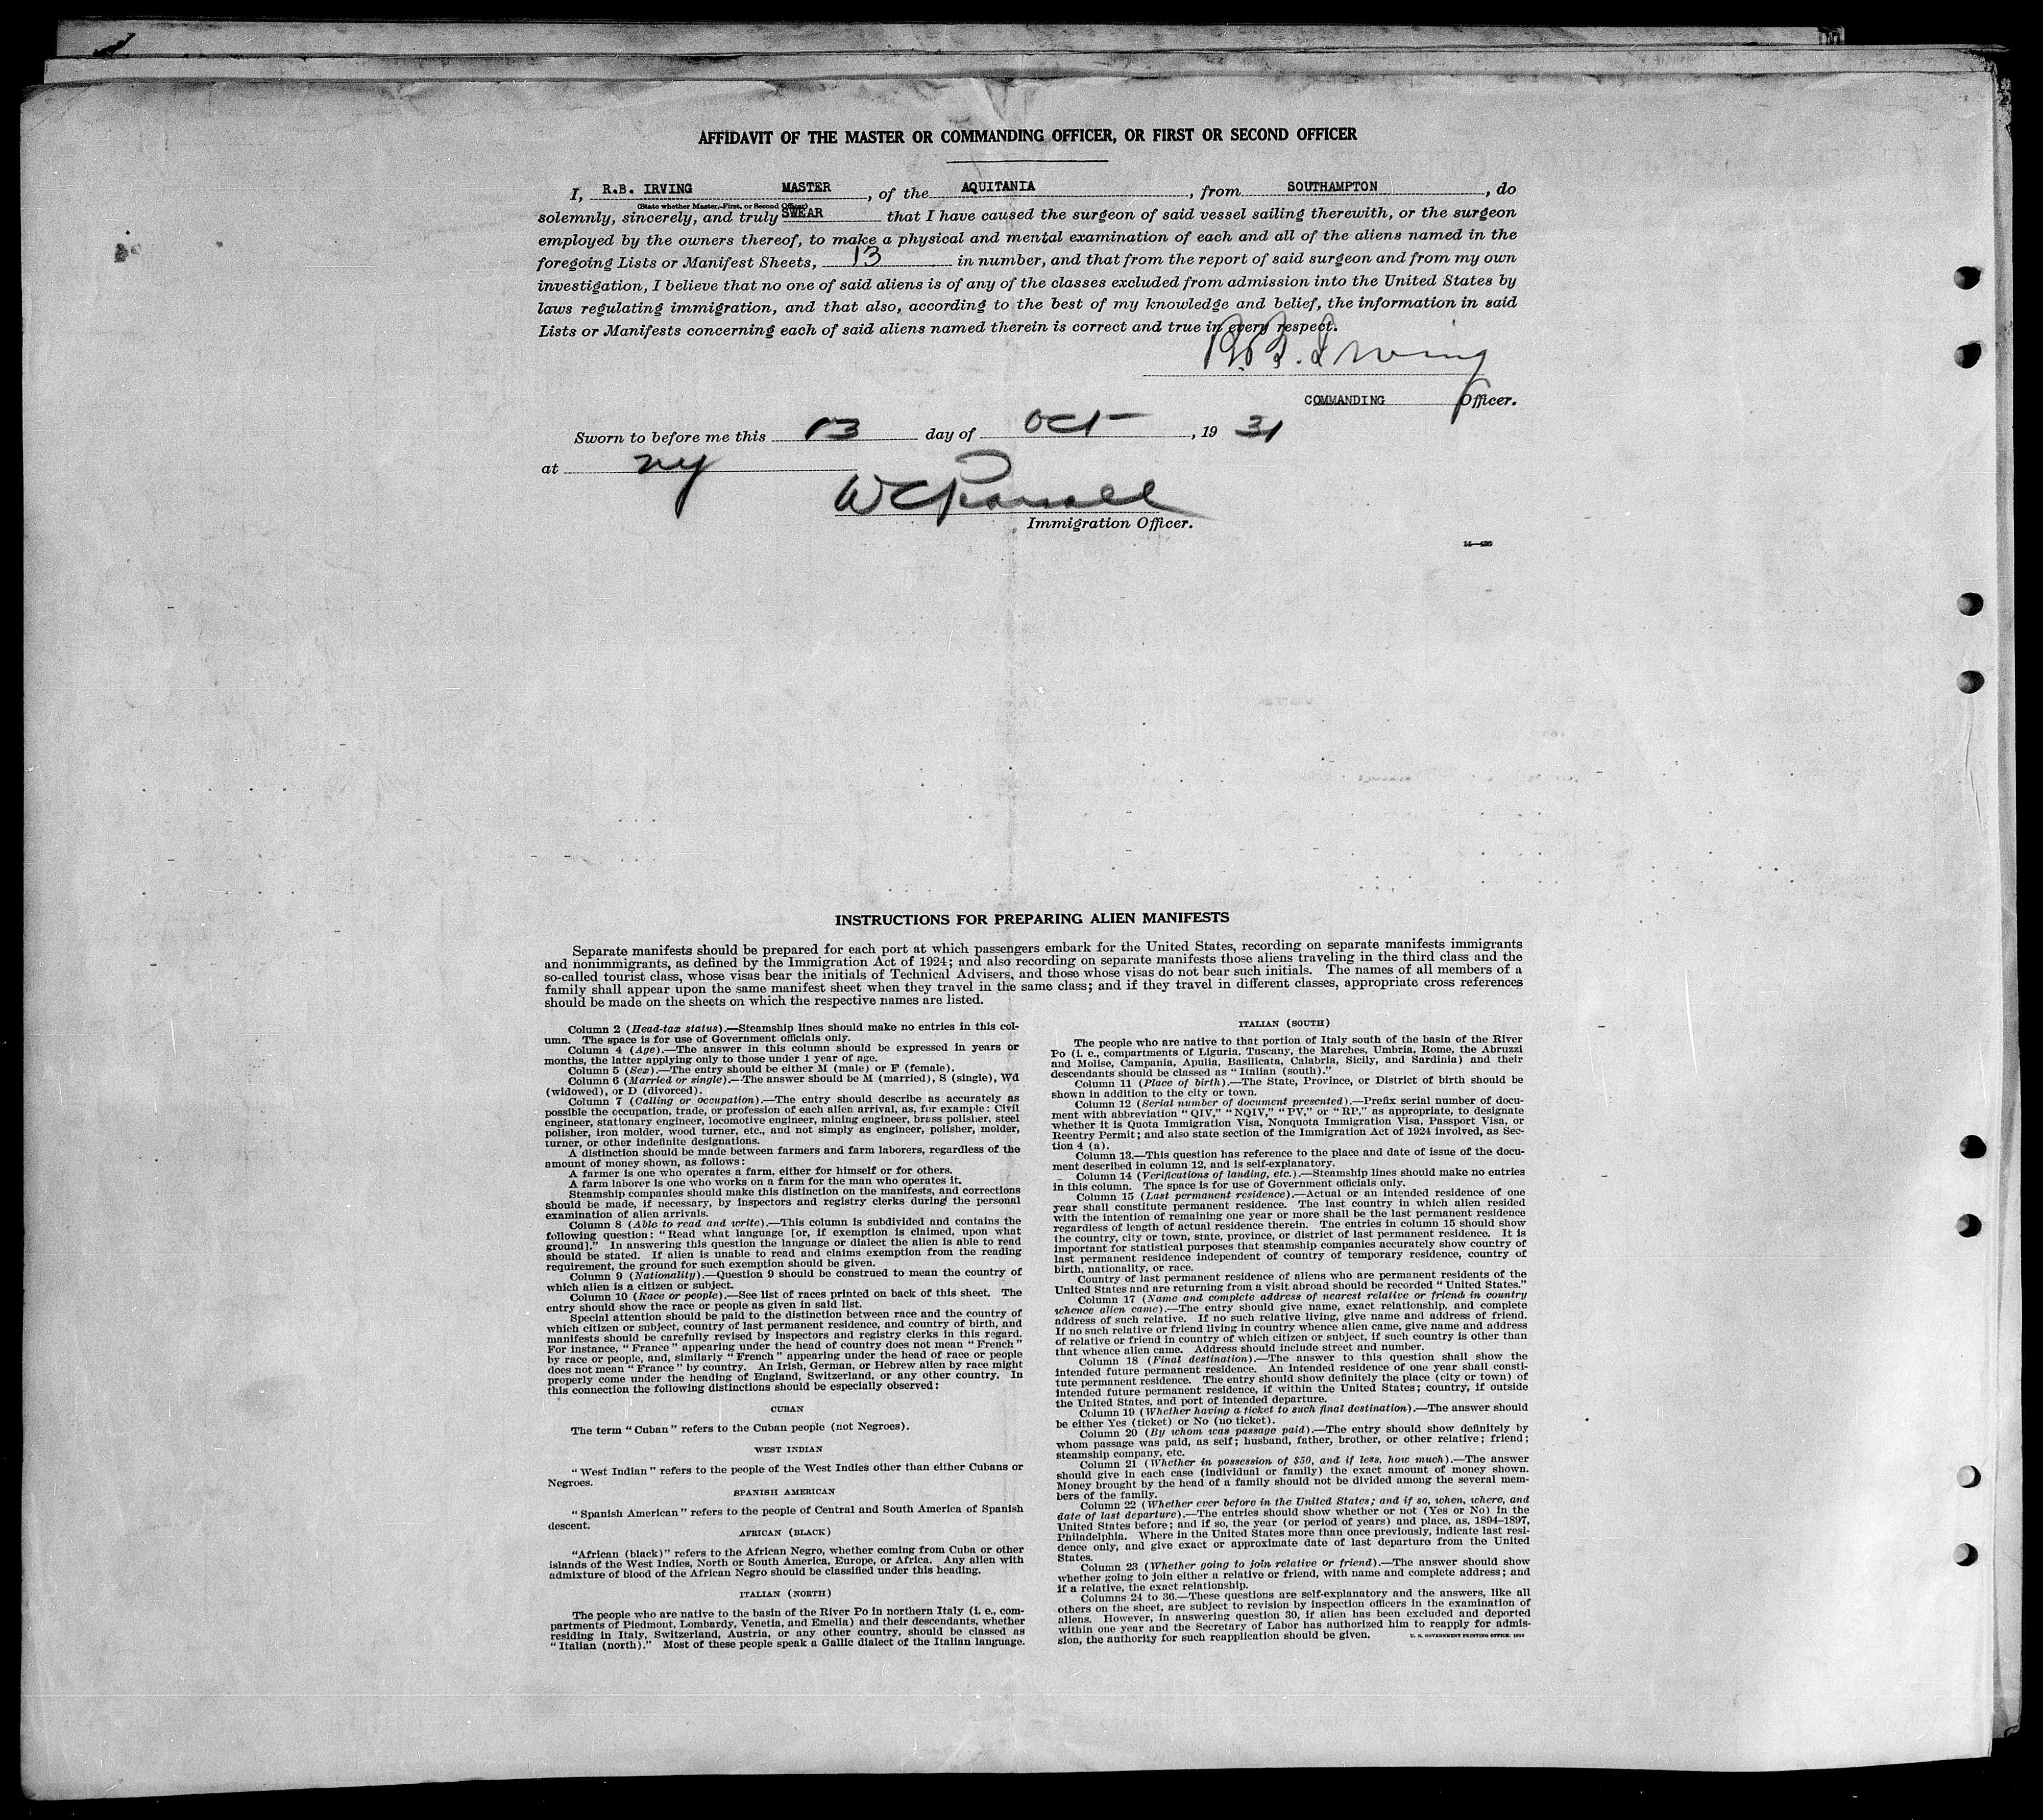 AFFIDAVIT OF THE MASTER OR COMMANDING OFFICER, OR FIRST OR SECOND OFFICER
I, R.B. IRVING MASTER, of the AQUITANIA, from SOUTHAMPTON, do
(State whether Master, First, or Second Officer)
solemnly, sincerely, and truly SWEAR that I have caused the surgeon of said vessel sailing therewith, or the surgeon
employed by the owners thereof, to make a physical and mental examination of each and all of the aliens named in the
foregoing Lists or Manifest Sheets, 13 in number, and that from the report of said surgeon and from my own
investigation, I believe that no one of said aliens is of any of the classes excluded from admission into the United States by
laws regulating immigration, and that also, according to the best of my knowledge and belief, the information in said
Lists or Manifests concerning each of said aliens named therein is correct and true in every respect.
R.B. Irving
COMMANDING Officer.
Sworn to before me this 13 day of Oct, 19 31
at NY
Immigration Officer.
INSTRUCTIONS FOR PREPARING ALIEN MANIFESTS
Separate manifests should be prepared for each port at which passengers embark for the United States, recording on separate manifests immigrants
and nonimmigrants, as defined by the Immigration Act of 1924; and also recording on separate manifests those aliens traveling in the third class and the
so-called tourist class, whose visas bear the initials of Technical Advisers, and those whose visas do not bear such initials. The names of all members of a
family shall appear upon the same manifest sheet when they travel in the same class; and if they travel in different classes, appropriate cross references
should be made on the sheets on which the respective names are listed.
Column 2 (Head-tax status).—Steamship lines should make no entries in this col-
umn. The space is for use of Government officials only.
Column 4 (Age).—The answer in this column should be expressed in years or
months, the latter applying only to those under 1 year of age.
Column 5 (Sex).—The entry should be either M (male) or F (female).
Column 6 (Married or single).—The answer should be M (married), S (single), Wd
(widowed), or D (divorced).
Column 7 (Calling or occupation).—The entry should describe as accurately as
possible the occupation, trade, or profession of each alien arrival, as, for example: Civil
engineer, stationary engineer, locomotive engineer, mining engineer, brass polisher, steel
polisher, iron molder, wood turner, etc., and not simply as engineer, polisher, molder,
turner, or other indefinite designations.
A distinction should be made between farmers and farm laborers, regardless of the
amount of money shown, as follows:
A farmer is one who operates a farm, either for himself or for others.
A farm laborer is one who works on a farm for the man who operates it.
Steamship companies should make this distinction on the manifests, and corrections
should be made, if necessary, by inspectors and registry clerks during the personal
examination of alien arrivals.
Column 8 (Able to read and write).—This column is subdivided and contains the
following question: "Read what language [or, if exemption is claimed, upon what
ground]." In answering this question the language or dialect the alien is able to read
should be stated. If alien is unable to read and claims exemption from the reading
requirement, the ground for such exemption should be given.
Column 9 (Nationality).—Question 9 should be construed to mean the country of
which alien is a citizen or subject.
Column 10 (Race or people).—See list of races printed on back of this sheet. The
entry should show the race or people as given in said list.
Special attention should be paid to the distinction between race and the country of
which citizen or subject, country of last permanent residence, and country of birth, and
manifests should be carefully revised by inspectors and registry clerks in this regard.
For instance, "France" appearing under the head of country does not mean "French"
by race or people, and, similarly "French" appearing under the head of race or people
does not mean "France" by country. An Irish, German, or Hebrew alien by race might
properly come under the heading of England, Switzerland, or any other country. In
this connection the following distinctions should be especially observed:
CUBAN
The term "Cuban" refers to the Cuban people (not Negroes).
WEST INDIAN
"West Indian" refers to the people of the West Indies other than either Cubans or
Negroes.
SPANISH AMERICAN
"Spanish American" refers to the people of Central and South America of Spanish
descent.
AFRICAN (BLACK)
"African (black)" refers to the African Negro, whether coming from Cuba or other
islands of the West Indies, North or South America, Europe, or Africa. Any alien with
admixture of blood of the African Negro should be classified under this heading.
ITALIAN (NORTH)
The people who are native to the basin of the River Po in northern Italy (i. e., com-
partments of Piedmont, Lombardy, Venetia, and Emelia) and their descendants, whether
residing in Italy, Switzerland, Austria, or any other country, should be classed as
"Italian (north)." Most of these people speak a Gallic dialect of the Italian language.
ITALIAN (SOUTH)
The people who are native to that portion of Italy south of the basin of the River
Po (i. e., compartments of Liguria, Tuscany, the Marches, Umbria, Rome, the Abruzzi
and Molise, Campania, Apulia, Basilicata, Calabria, Sicily, and Sardinia) and their
descendants should be classed as "Italian (south)."
Column 11 (Place of birth).—The State, Province, or District of birth should be
shown in addition to the city or town.
Column 12 (Serial number of document presented).—Prefix serial number of docu-
ment with abbreviation "QIV," "NQIV," "PV," or "RP," as appropriate, to designate
whether it is Quota Immigration Visa, Nonquota Immigration Visa, Passport Visa, or
Reentry Permit; and also state section of the Immigration Act of 1924 involved, as Sec-
tion 4 (a).
Column 13.—This question has reference to the place and date of issue of the docu-
ment described in column 12, and is self-explanatory.
Column 14 (Verifications of landing, etc.).—Steamship lines should make no entries
in this column. The space is for use of Government officials only.
Column 15 (Last permanent residence).—Actual or an intended residence of one
year shall constitute permanent residence. The last country in which alien resided
with the intention of remaining one year or more shall be the last permanent residence
regardless of length of actual residence therein. The entries in column 15 should show
the country, city or town, state, province, or district of last permanent residence. It is
important for statistical purposes that steamship companies accurately show country of
last permanent residence independent of country of temporary residence, country of
birth, nationality, or race.
Country of last permanent residence of aliens who are permanent residents of the
United States and are returning from a visit abroad should be recorded "United States."
Column 17 (Name and complete address of nearest relative or friend in country
whence alien came).—The entry should give name, exact relationship, and complete
address of such relative. If no such relative living, give name and address of friend.
If no such relative or friend living in country whence alien came, give name and address
of relative or friend in country of which citizen or subject, if such country is other than
that whence alien came. Address should include street and number.
Column 18 (Final destination).—The answer to this question shall show the
intended future permanent residence. An intended residence of one year shall consti-
tute permanent residence. The entry should show definitely the place (city or town) of
intended future permanent residence, if within the United States; country, if outside
the United States, and port of intended departure.
Column 19 (Whether having a ticket to such final destination).—The answer should
be either Yes (ticket) or No (no ticket).
Column 20 (By whom was passage paid).—The entry should show definitely by
whom passage was paid, as self; husband, father, brother, or other relative; friend;
steamship company, etc.
Column 21 (Whether in possession of $50, and if less, how much).—The answer
should give in each case (individual or family) the exact amount of money shown.
Money brought by the head of a family should not be divided among the several mem-
bers of the family.
Column 22 (Whether ever before in the United States; and if so, when, where, and
date of last departure).—The entries should show whether or not (Yes or No) in the
United States before; and if so, the year (or period of years) and place, as, 1894–1897,
Philadelphia. Where in the United States more than once previously, indicate last resi-
dence only, and give exact or approximate date of last departure from the United
States.
Column 23 (Whether going to join relative or friend).—The answer should show
whether going to join either a relative or friend, with name and complete address; and
if a relative, the exact relationship.
Columns 24 to 36.—These questions are self-explanatory and the answers, like all
others on the sheet, are subject to revision by inspection officers in the examination of
aliens. However, in answering question 30, if alien has been excluded and deported
within one year and the Secretary of Labor has authorized him to reapply for admis-
sion, the authority for such reapplication should be given. U. S. GOVERNMENT PRINTING OFFICE: